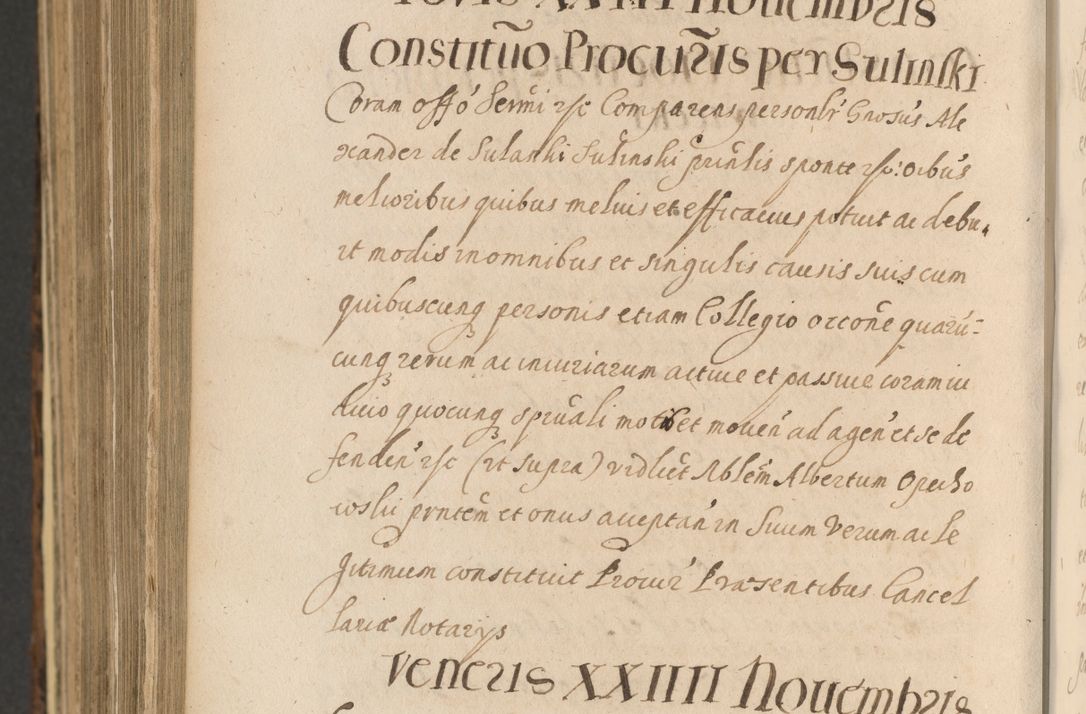 Iovis XXIII Nouembris
Constitũo Procur̃is per Sulinski
Coram offo Sermi etc Comparens personlr Gnosus Ale
xander de Sulanki Sulinski prinlis sponte etc: oibus
melioribus quibus meluis et efficacius potuit ac debu„
it modis in omnibus et singulis causis suis cum
quibuscunq personis etiam Collegio occone quarũ=
cunq rerum ac iniuriarum actiue et passiue coram iu
dicio quocunq spruali motis et mouen ad agen et se de
fenden etc (ut supra) vidlicet Nblem Albertum Opocho
wski prntem et onus acceptan in Suum Verum ac le
gitimum constituit Procur Præsentibus Cancel
lariæ Notarys
Veneris XXIIII Nouembris